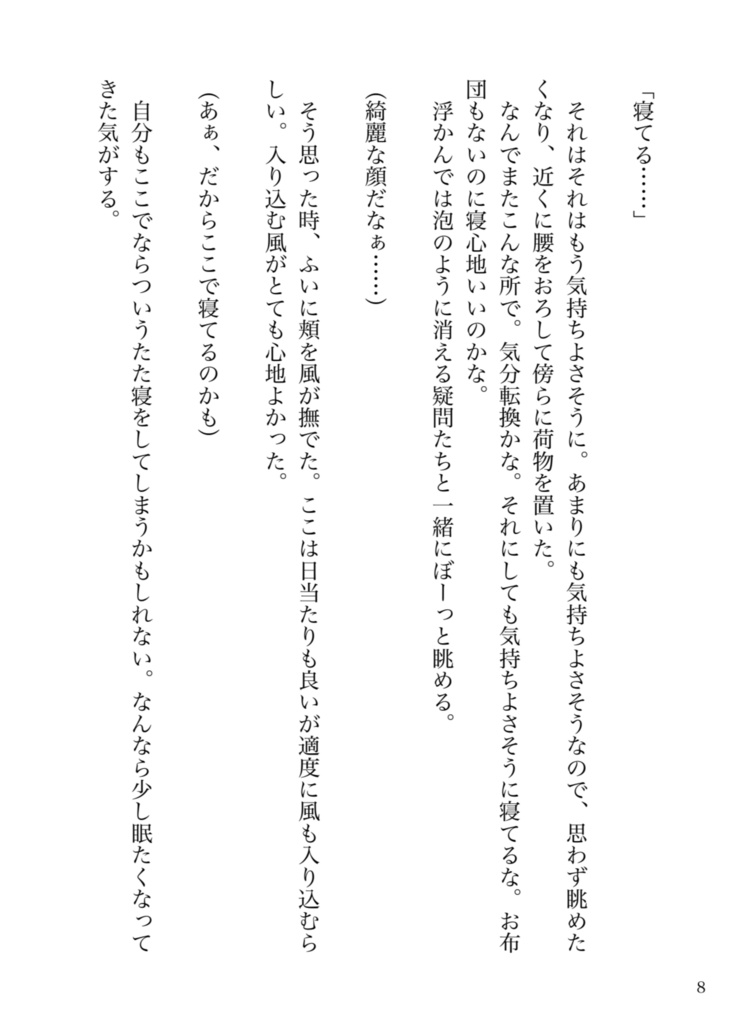 「寝てる……」
それはそれはもう気持ちよさそうに。あまりにも気持ちよさそうなので、思わず眺めた
くなり、近くに腰をおろして傍らに荷物を置いた。
なんでまたこんな所で。気分転換かな。それにしても気持ちよさそうに寝てるな。お布
団もないのに寝心地いいのかな。
浮かんでは泡のように消える疑問たちと一緒にぼーっと眺める。
(綺麗な顔だなぁ……)
そう思った時、ふいに頬を風が撫でた。ここは日当たりも良いが適度に風も入り込むら
しい。入り込む風がとても心地よかった。
(あぁ、だからここで寝てるのかも)
自分もここでならついうたた寝をしてしまうかもしれない。なんなら少し眠たくなって
きた気がする。
8